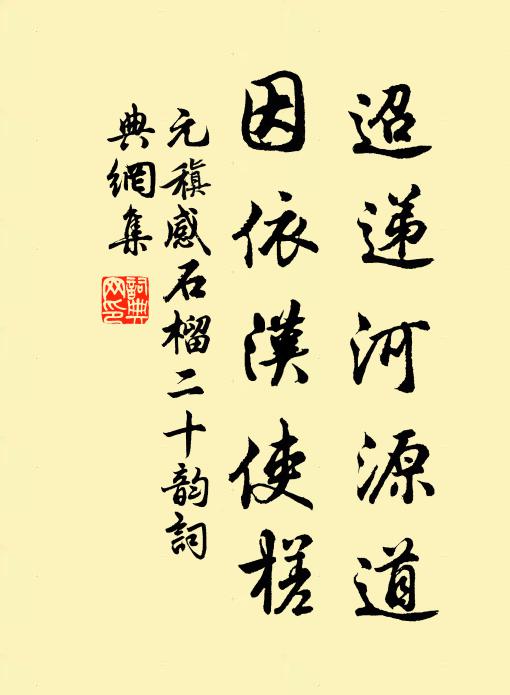 迢递河源道
因依汉使槎
元稹感石榴二十韵詞
典網集
詞典
网印